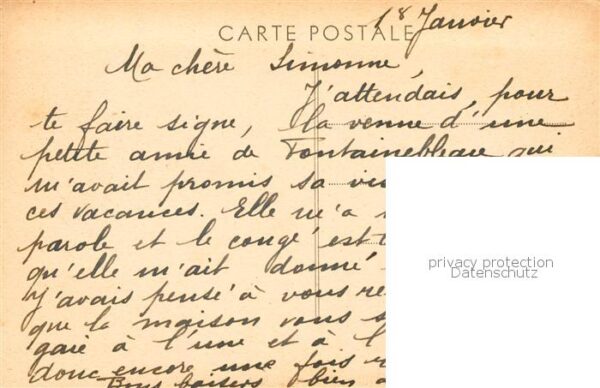 18 Janvier
CARTE POSTALE
Ma chère Simonne,
J'attendais, pour
te faire signe, la venue d'une
petite amie de Fontainebleau qui
m'avait promis sa
ces vacances. Elle m'a
parole et le congé est
qu'elle m'ait donné
J'avais pensé à vous
que la maison vous
gaie à l'une et à l'
donc encore une fois
Bons baisers bien
privacy protection
Datenschutz